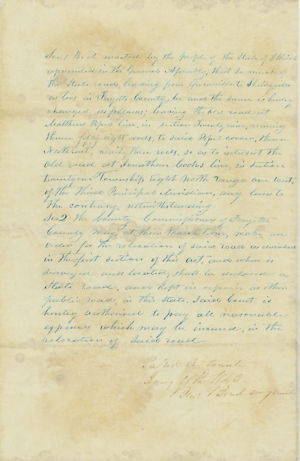 Sec 1 Be it enacted by the people of the State of Illinois
represented in the General Assembly, That so much of
the State road, leading from Greenville to Shelbyville
as lies in Fayette County, be and the same is hereby
changed as follows: leaving the old road at
Matthew line, in section Twenty nine, running
thence fifty eight rods, to said corner, thence
North with three rods, so as to intersect the
Old road at Jonathan line, in section
Twenty one Township eight North range one west,
of the Third Principal Meridian, any law to
the contrary notwithstanding
Sec 2 The County Commissioners of Fayette
County May at their March term, make an
order for the relocation of said road as described
in the first section of this act, and when so
surveyed and located, shall be declared a
State road, and kept in repair as other
public roads, in this State, Said Court is
hereby authorized to pay all reasonable
expenses which may be incurred, in the
relocation of said road
Passed the Senate
Jany
Bond